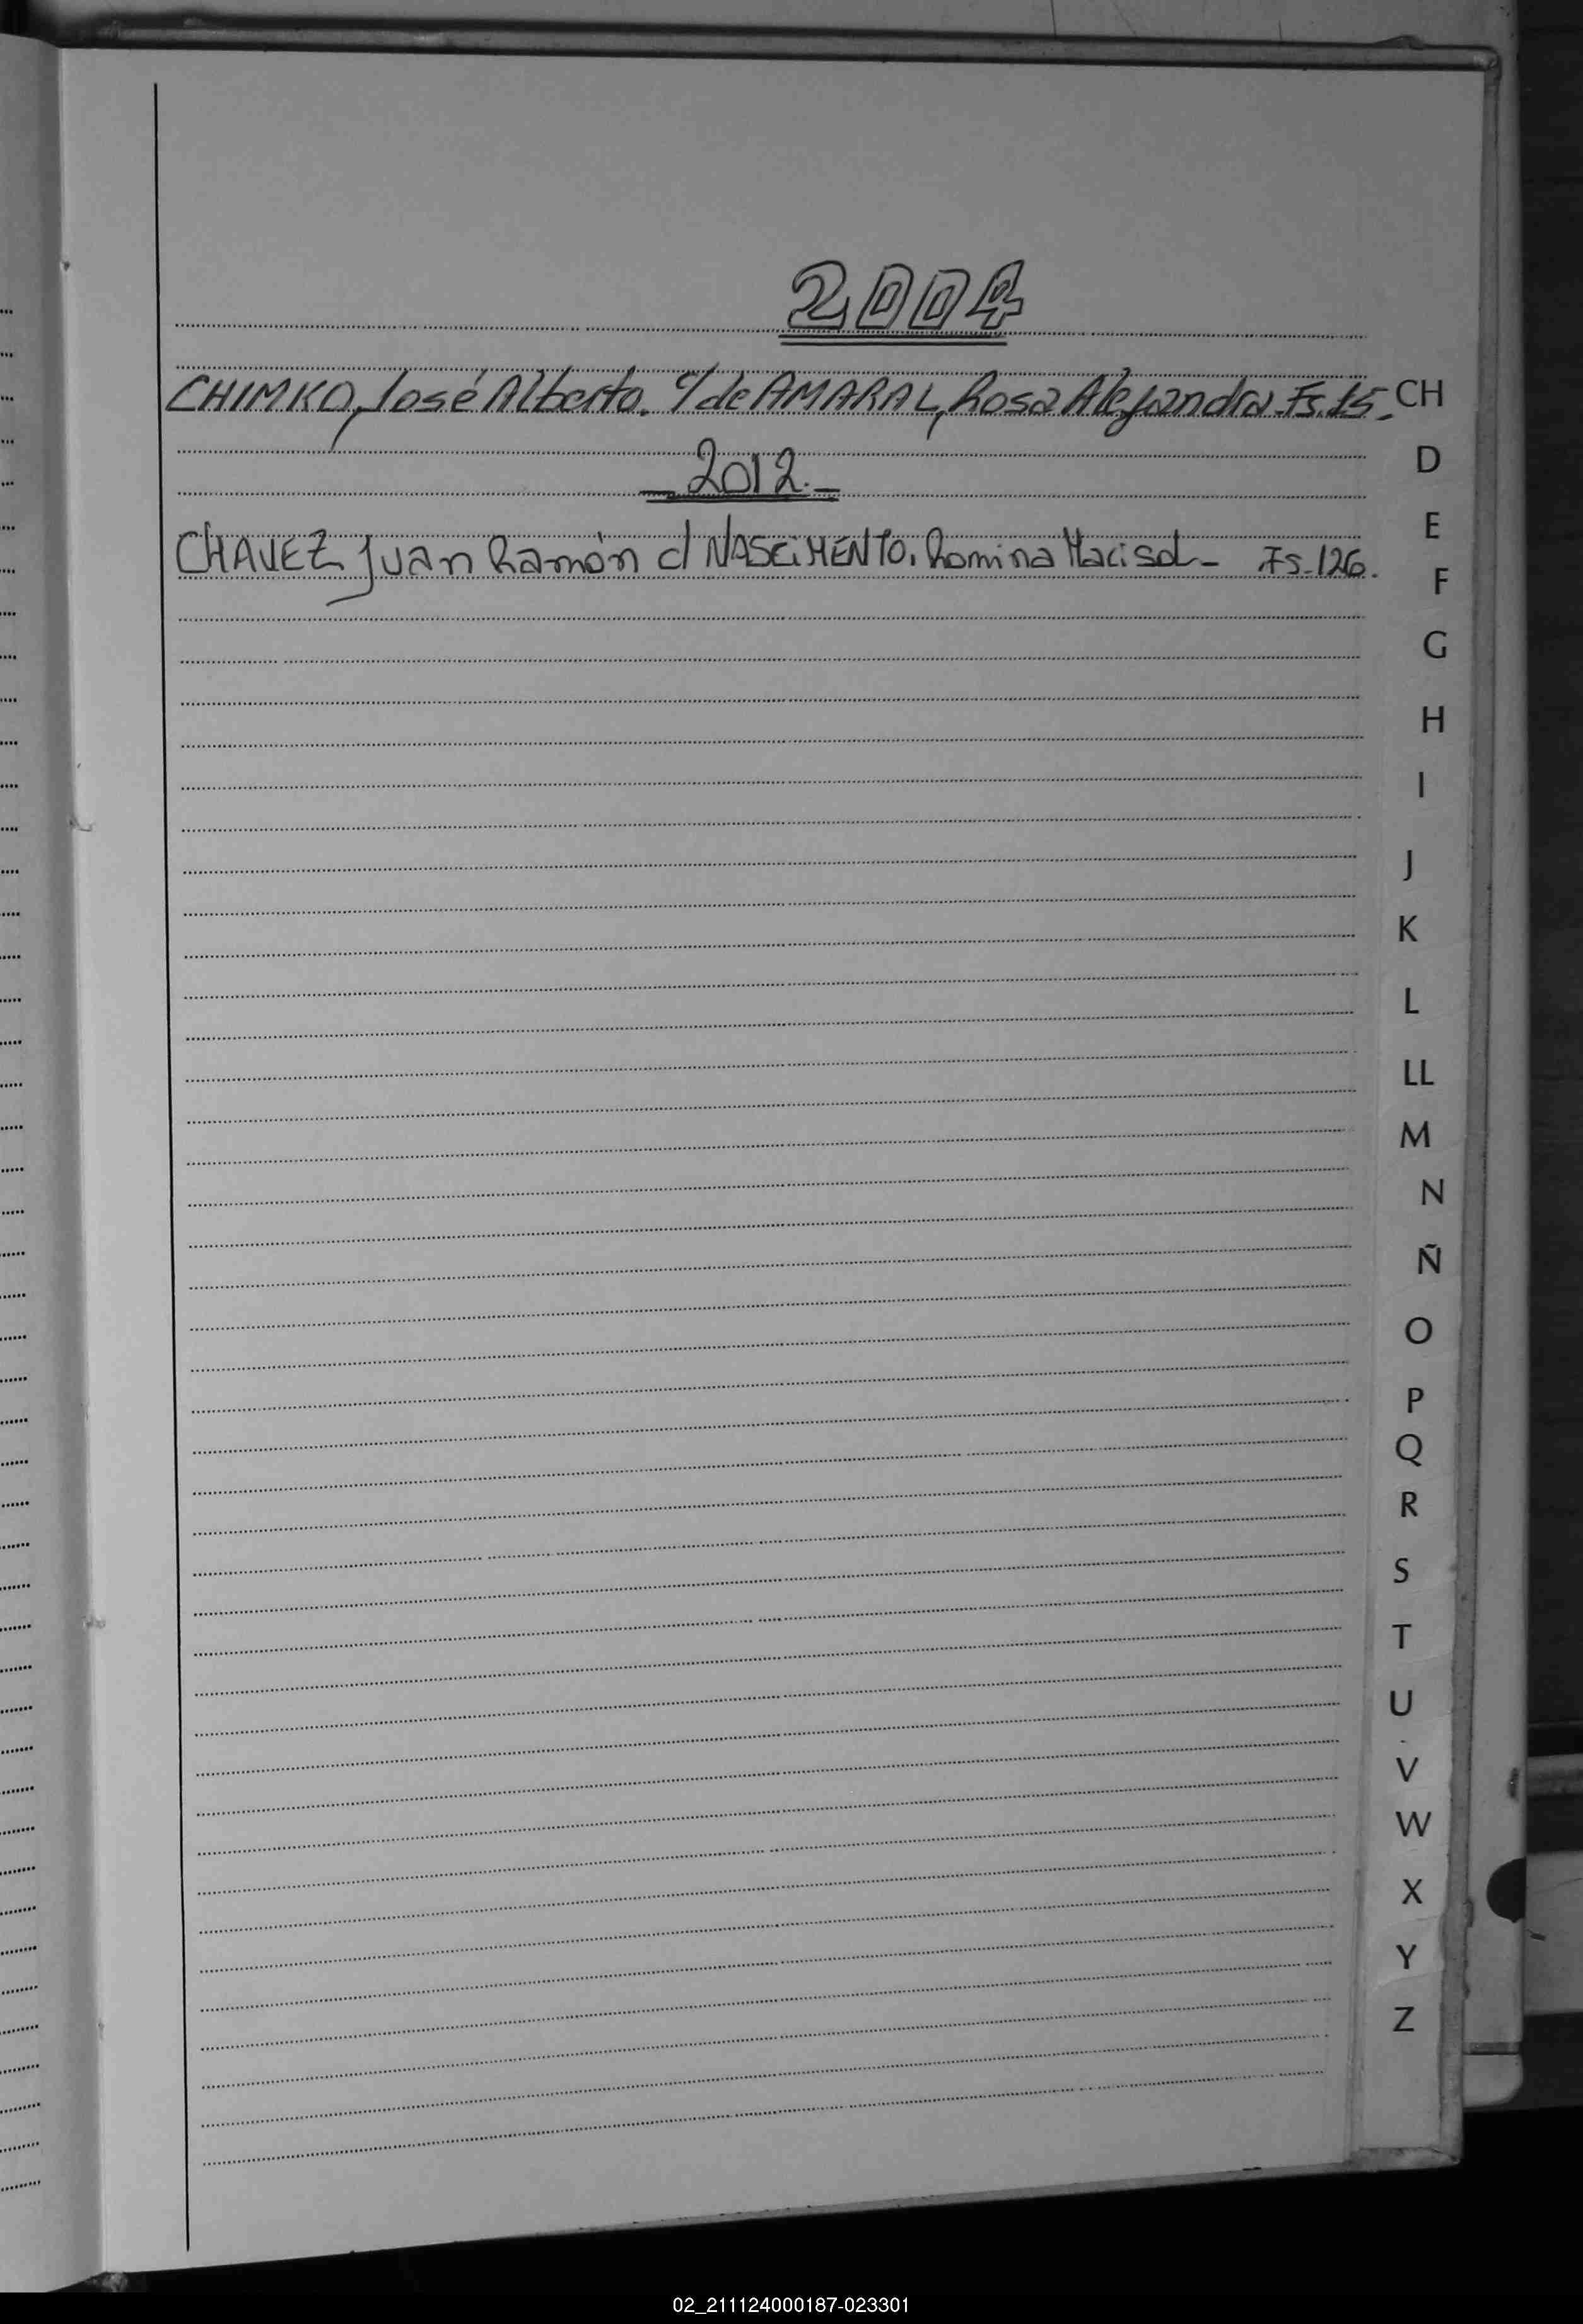 2004
CHIMKO, José Alberto. c/ de AMARAL, Rosa Alejandra. Fs. 15.-
_2012._
CHAVEZ Juan Ramón c/ NASCiMENTO. Romina Marisol- Fs-126.
CH
D
E
F
G
H
I
J
K
L
LL
M
N
Ñ
O
P
Q
R
S
T
U
V
W
X
Y
Z
02_211124000187-023301